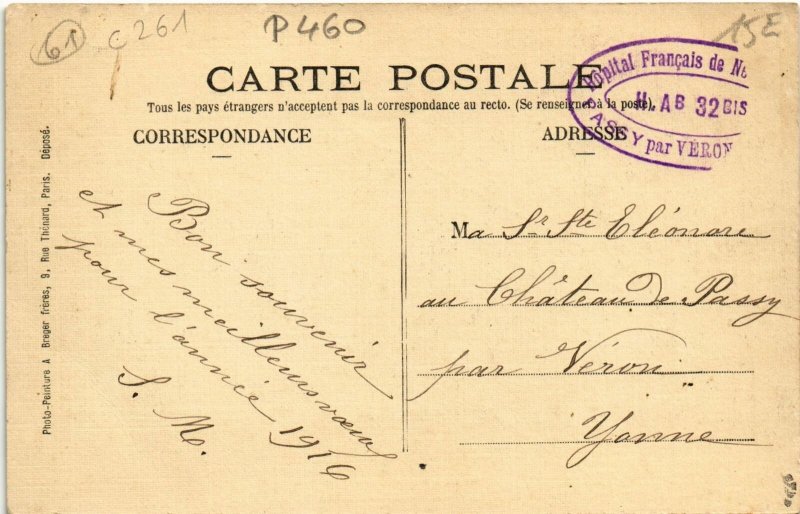 61
C 261
P 460
15E
CARTE POSTALE
Tous les pays étrangers n'acceptent pas la correspondance au recto. (Se renseigner à la poste).
CORRESPONDANCE
ADRESSE
Hôpital Français de
H AB 32 BIS
PASSY par VÉRON
Photo-Peinture A Breger frères, 9, Rue Thénard, Paris. Déposé.
Bon souvenir
et mes meilleurs vœux
pour l'année 1916
S. M.
Ma Sr Ste Eléonore
au Château de Passy
par Véron
Yonne